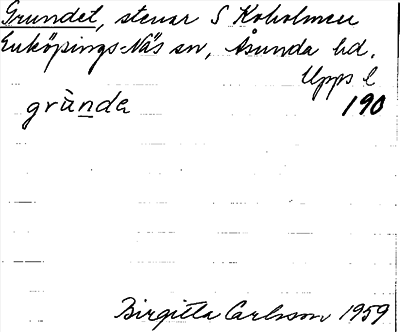 Grundet, stenar S Koholmen
Enköpings-Näs sn, Åsunda hd.
Upps l
grùnda 190
Birgitta Carlsson 1959